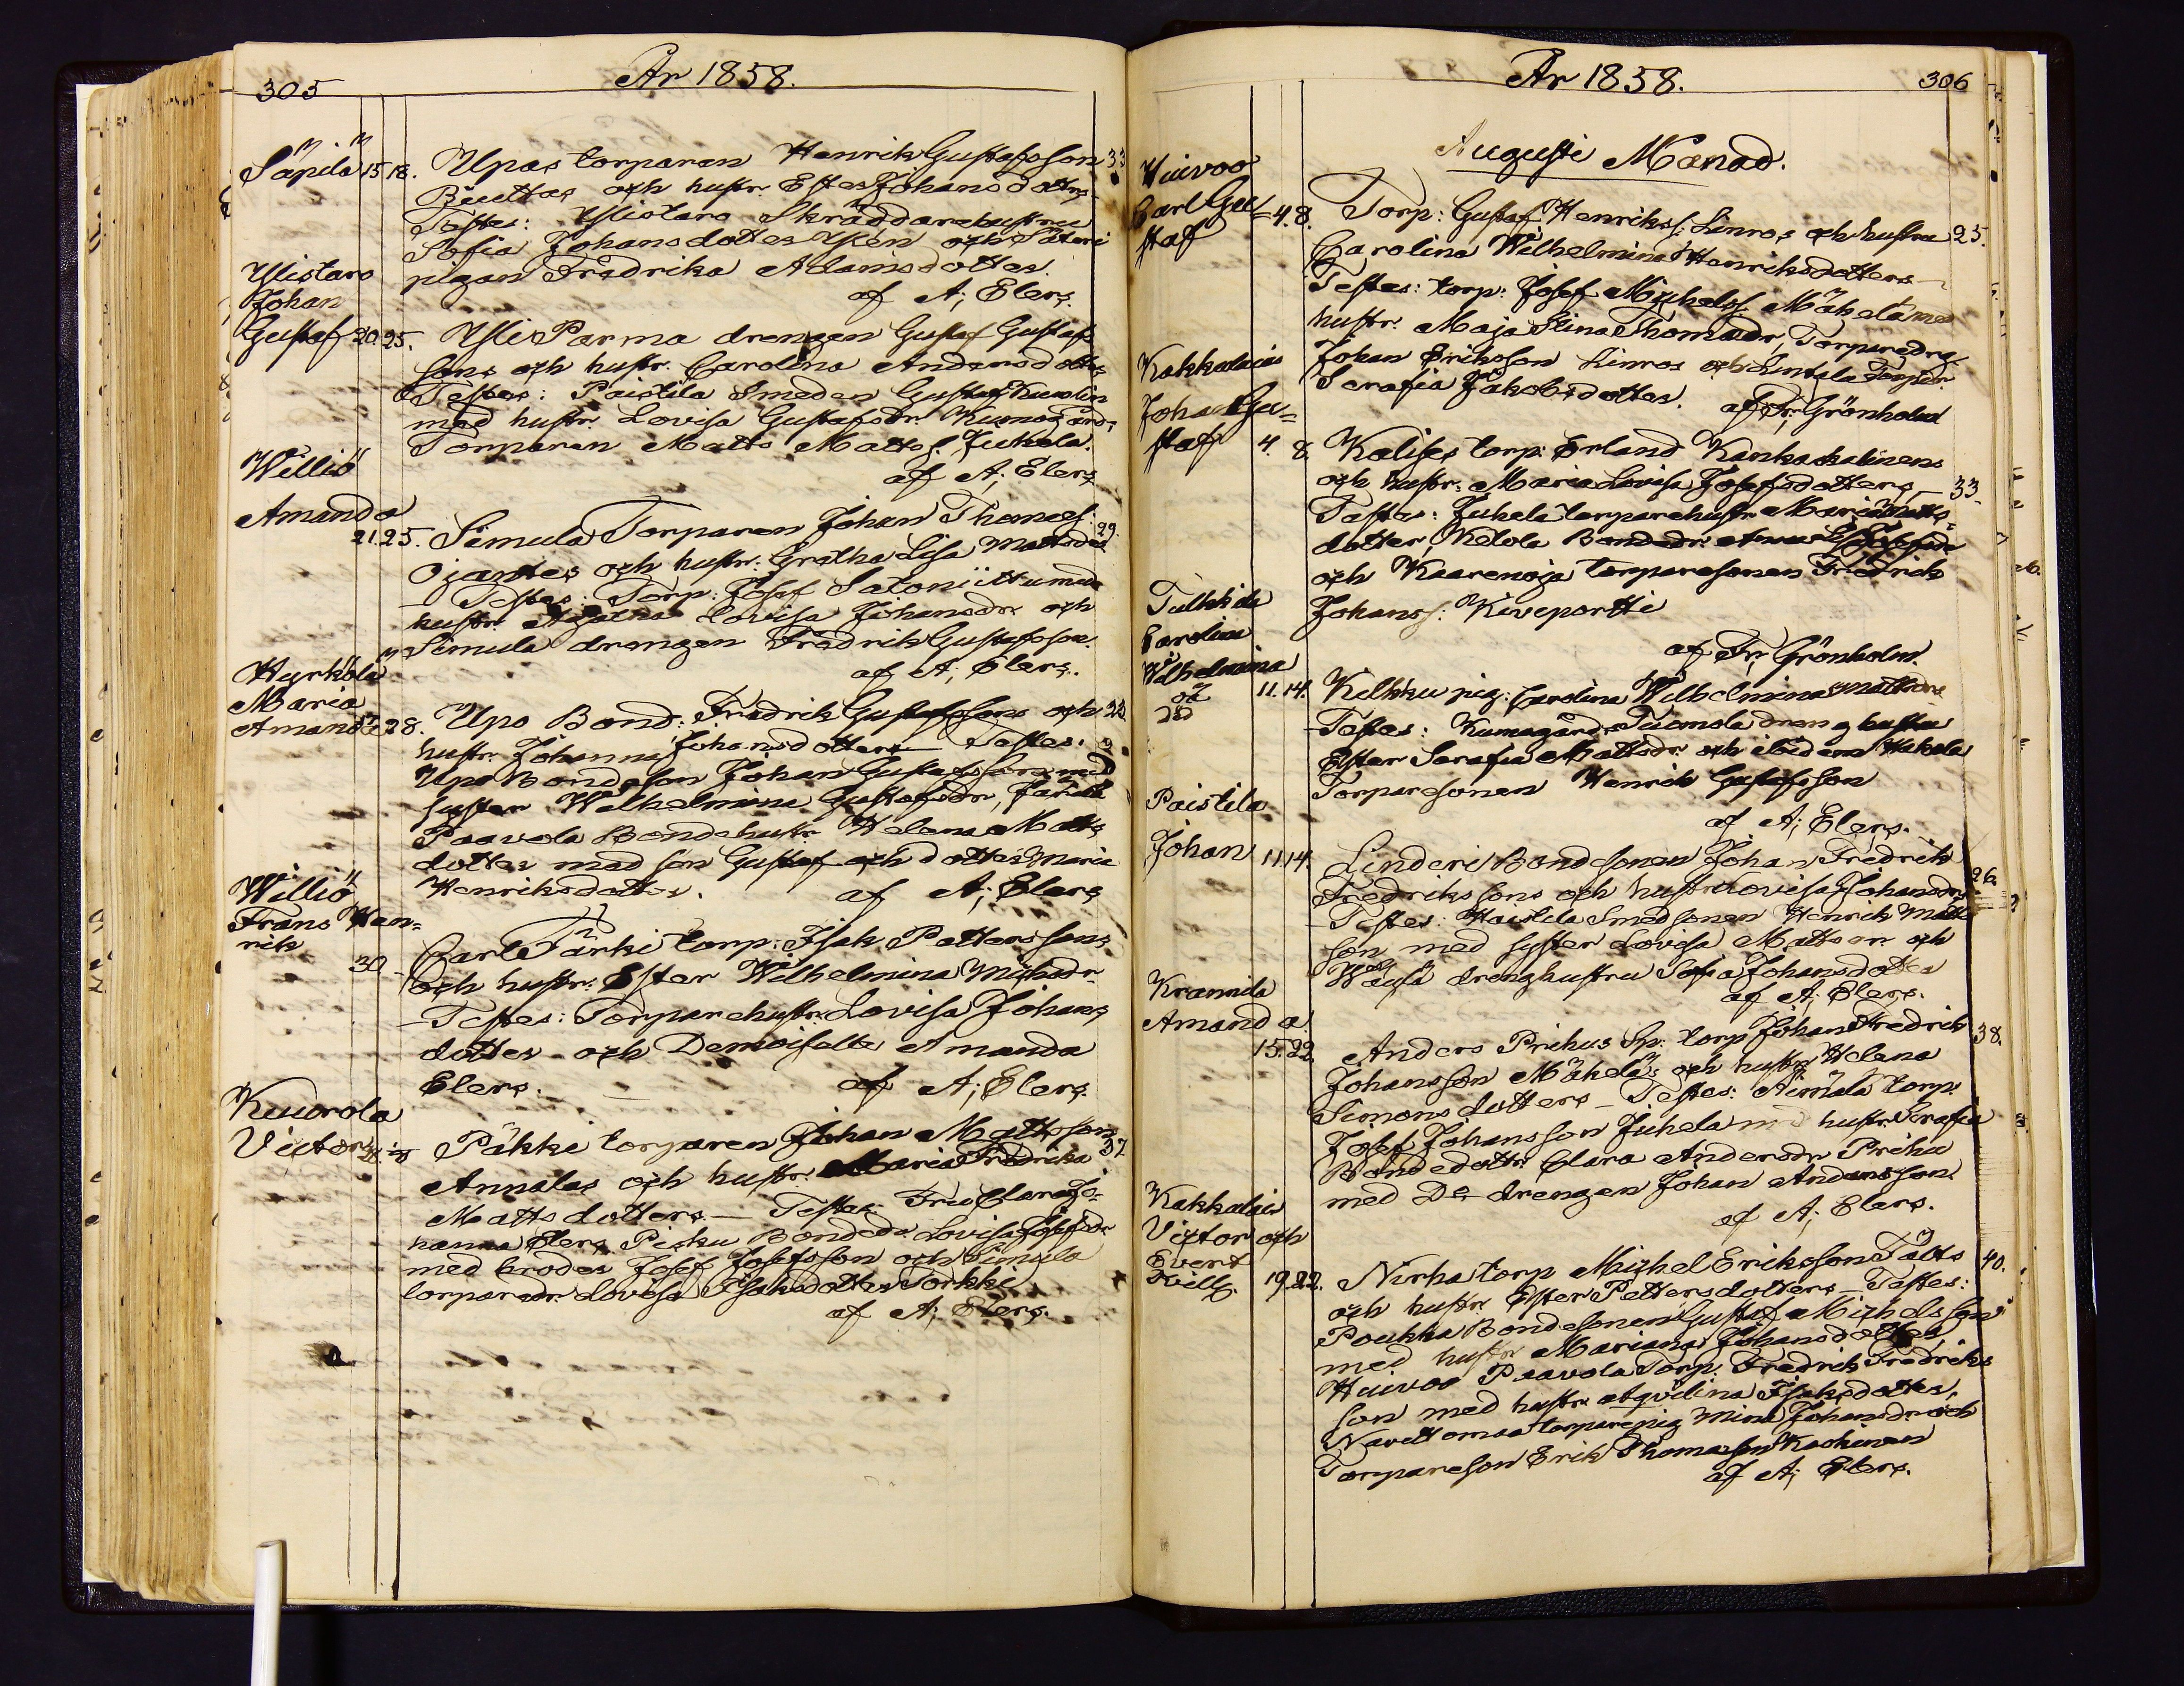 305
År 1858.
Säpilä 15 18. Upas torparen Henrik Gustafsson 33
Buuttas och hustr. Ester Johansdotters
Testes: Ylistaro Skräddarehustru
Sofia Johansdotter och Säteri
pigan Fredrika Adamsdotter.
af A; Elers.
Ylistaro
Johan
Gustaf 20. 25. Yli Parma drengen Gustaf Gustaf-
sons och hustr. Carolina Andersdotters
Testes: Paistila Smeden Gustaf
med hustr. Lovisa Gustafsdr. Kumogårds
Torparen Matts Mattss. Juhela.
af A; Elers
Williö
Amanda
21. 25. Simula Torparen Johan Thomass: 29.
Ojantes och hustr. Gretha Lisa Mattsdrs
Testes: Torp: Josef Satoniittu med
hustr. Lovisa Johansdr. och
Simula drengen Fredrik Gustafsson.
af A; Elers.
Hyrkölä
Maria
Amanda 28. Upo Bond: Fredrik Gustafssons och 23
hustr. Johanna Johansdotters Testes:
Upo Bondeson Johan Gustafsson med
syster Wilhelmina Gustafsdr,
Paavola Bondehustr Helena Matts
dotter med son Gustaf och dotter Maria
Henriksdotter. af A; Elers
Williö
Frans Hen-
rik
30 Carl Färki torp: Isak Petterssons
och hustr. Ester Wilhelmina Michsdr
Testes: Torparehustr. Lovisa Johans
dotter och Demoiselle Amanda
Elers. af A; Elers.
Kuurola
Victor 28. Päkki torparen Johan Mattsson 37
Annalas och hustr. Maria Fredrika
Mattsdotters Testes: Fru Clara Jo-
hanna Elers, Pirku Bondedr. Lovisa Josefsdr
med broder Josef Josefsson och Simula
torparedr. Lovisa Isaksdotter Torkki
af A; Elers.
År 1858.
306
Augusti Månad.
Huivoo
Carl Gu=
staf 4. 8. Torp: Gustaf Henrikss: Linros och hustru 25.
Carolina Wilhelmina Henriksdotters
Testes: torp: Josef Michelss. Mäkelä med
hustr. Maja Stina Thomasdr, Torparedrg
Johan Eriksson Linros och torpdr
Serafia Jakobsdotter. af Fr; Grönholm
Kakkalais
Johan Gu=
staf 4. 8. Kalises torp: Erland Kankaskalinens
och hustr. Maria Lovisa Josefsdotters 33
Testes: Juhela torparehustr. Maria Matts
dotter, Ketola Bondedr. Anna Lisa Josefsdr
och Kaarenoja torparesonen Fredrik
Johanss: Kiveportti
af Fr; Grönholm.
Tulkkila
Carolina
Wilhelmina
oä
död 11. 14. Kilkku pig: Carolina Wilhelmina Mattsdrs
Testes: Kumogårds Tuomola dreng hustru
Ester Serafia Mattsdr. och ibidem Hakola
Torparesonen Henrik Gustafsson
af A; Elers.
Paistila
Johan 11. 14. Linderi Bondsonen Johan Fredrik 26.
Fredrikssons och hustr. Lovisa Johansdrs
Testes: Haistila Smedsonen Henrik Matts
son med syster Lovisa Mattsdr. och
drenghustru Sofia Johansdotter
af A; Elers.
Krannila
Amanda.
15. 22. Anders Prihus Sp: torp Johan Fredrik 38.
Johansson Mäkeläs och hustr. Helena
Simonsdotters Testes: Äimälä torp.
Josef Johansson Juhela med hustr. Serafia
Bondedottr. Clara Andersdr. Prihu
med Do drengen Johan Andersson
af A; Elers.
Kakkalais
Victor och
Evert
tvill. 19. 22. Nirha torp Michel Eriksson Fälts 40.
och hustr. Ester Pettersdotters Testes:
Poukka Bondesonen Gustaf Michelsson
med hustr. Mariana Johansdotter,
Huivoo Paavola torp. Fredrik Fredriks
son med hustr. Aqvilina Isaksdotter,
Navettomaa torparepig Mina Johansdr och
Torpareson Erik Thomasson Koskinen
af A; Elers.